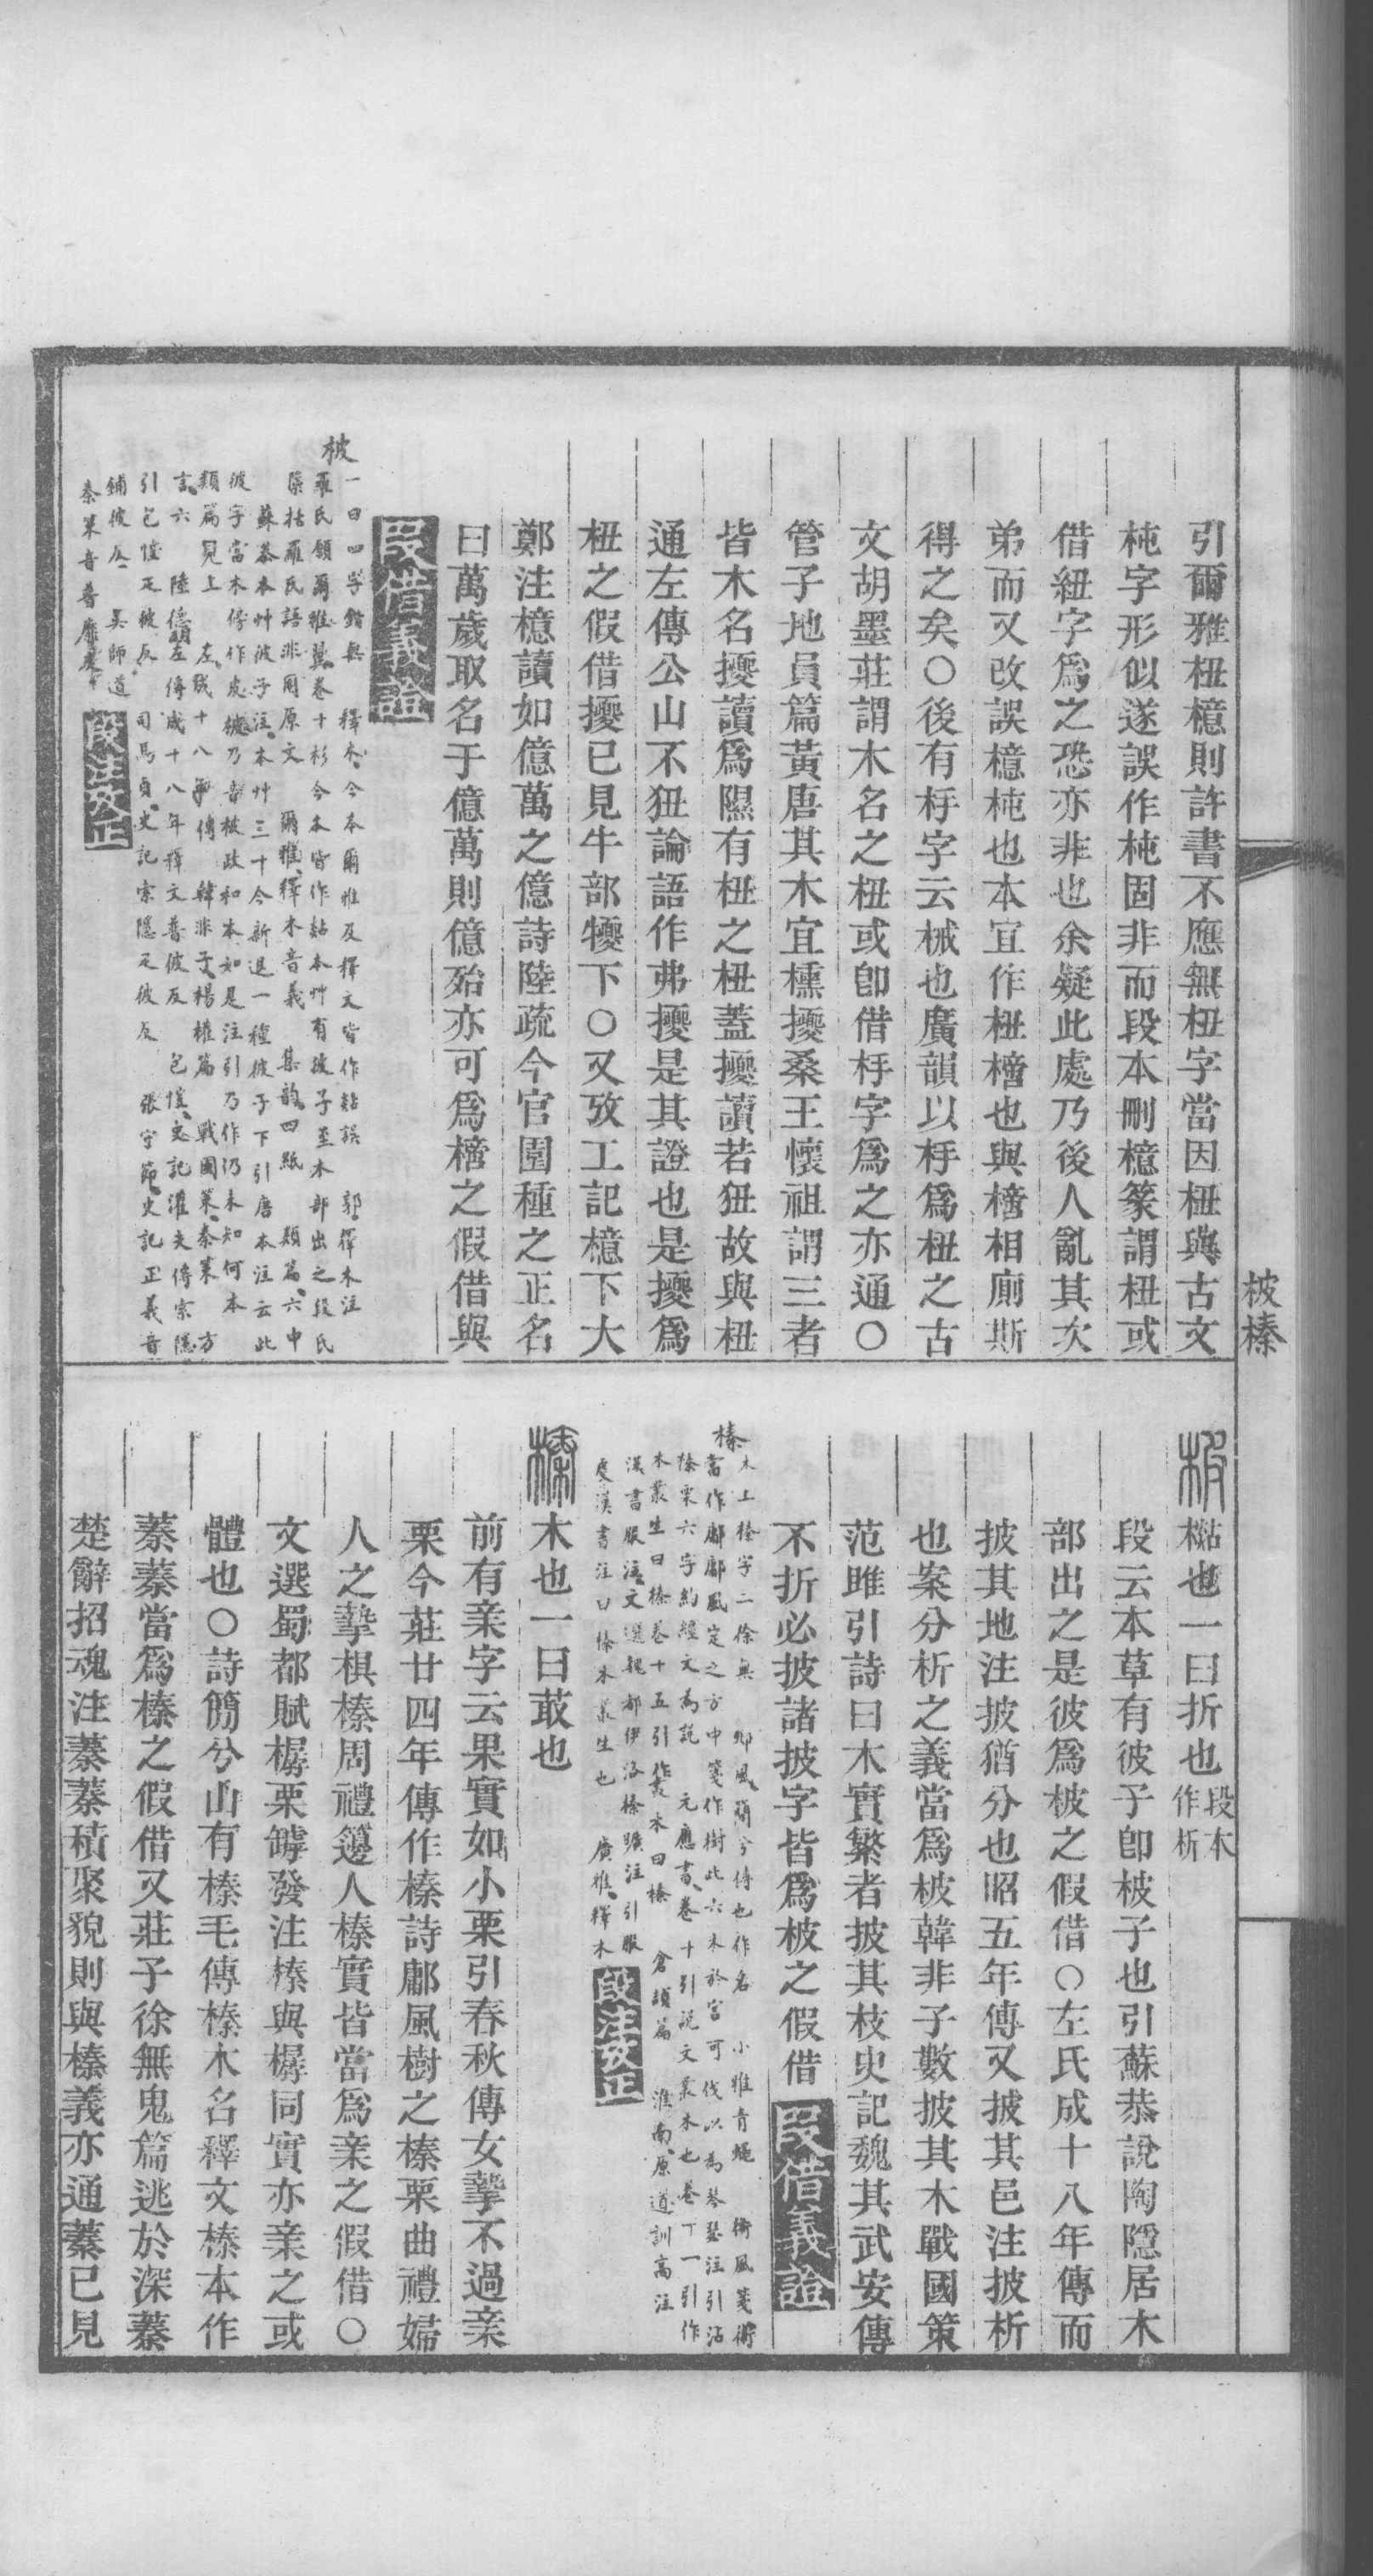 柀榛
引爾雅杻檍則許書不應無杻字當因杻與古文
杶字形似遂誤作杶固非而段本刪檍篆謂杻或
借紐字爲之恐亦非也余疑此處乃後人亂其次
弟而又改誤檍杶也本宜作杻㯆也與㯆相廁斯
得之矣○後有杽字云械也廣韻以杽爲杻之古
文胡墨莊謂木名之杻或卽借杽字爲之亦通○
管子地員篇黃唐其木宜櫄擾桑王懷祖謂三者
皆木名擾讀爲隰有杻之杻蓋擾讀若狃故與杻
通左傳公山不狃論語作弗擾是其證也是擾爲
杻之假借擾已見牛部犪下○又攷工記檍下大
鄭注檍讀如億萬之億詩陸疏今官園種之正名
曰萬歲取名于億萬則億殆亦可爲㯆之假借與
段借義證
柀一曰四字鍇無　釋木今本爾雅及釋文皆作䊀誤　郭釋木注
羅氏願爾雅翼卷十杉今本皆作䊀本艸有彼子至木部出之段氏
檃括羅氏語非用原文　爾雅釋木音義　集韵四紙　類篇六中
蘇恭本艸彼子注本艸三十今新退一種彼子下引唐本注云此
彼字當木傍作皮柀乃音披政和本如是注引乃作仍未知何本
類篇見上　左成十八年傳　韓非子楊權篇　戰國策秦策　方
言六　陸德明左傳成十八年釋文普彼反　包愷史記灌夫傳索隱
引包愷疋彼反　司馬貞史記索隱疋彼反　張守節史記正義音
鋪彼反　吳師道
秦策音普靡反　段注攷正
柀㯕也一曰折也段本作析
段云本草有彼子卽柀子也引蘇恭說陶隱居木
部出之是彼爲柀之假借○左氏成十八年傳而
披其地注披猶分也昭五年傳又披其邑注披析
也案分析之義當爲柀韓非子數披其木戰國策
范雎引詩曰木實繁者披其枝史記魏其武安傳
不折必披諸披字皆爲柀之假借　段借義證
榛木上榛字二徐無　邶風簡兮傳也作名　小雅青蠅　衞風箋衞
當作鄘鄘風定之方中箋作樹此六木於宮可伐以爲琴瑟注引沾
榛栗六字約經文爲說　元應書卷十引說文叢木也卷十一引作
木叢生曰榛卷十五引作叢木曰榛　倉頡篇　淮南原道訓高注
漢書服注文選魏都伊洛榛曠注引服
虔漢書注曰榛木叢生也　廣雅釋木　段注攷正
榛木也一曰菆也
前有亲字云果實如小栗引春秋傳女摯不過亲
栗今莊廿四年傳作榛詩鄘風樹之榛栗曲禮婦
人之摯椇榛周禮籩人榛實皆當爲亲之假借○
文選蜀都賦樼栗罅發注榛與樼同實亦亲之或
體也○詩簡兮山有榛毛傳榛木名釋文榛本作
蓁蓁當爲榛之假借又莊子徐無鬼篇逃於深蓁
楚辭招魂注蓁蓁積聚貌則與榛義亦通蓁已見